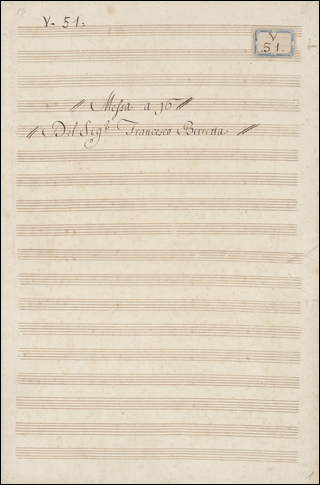 V. 51.
V
51.
Messa a 16
Del Sig.r Francesco Berretta